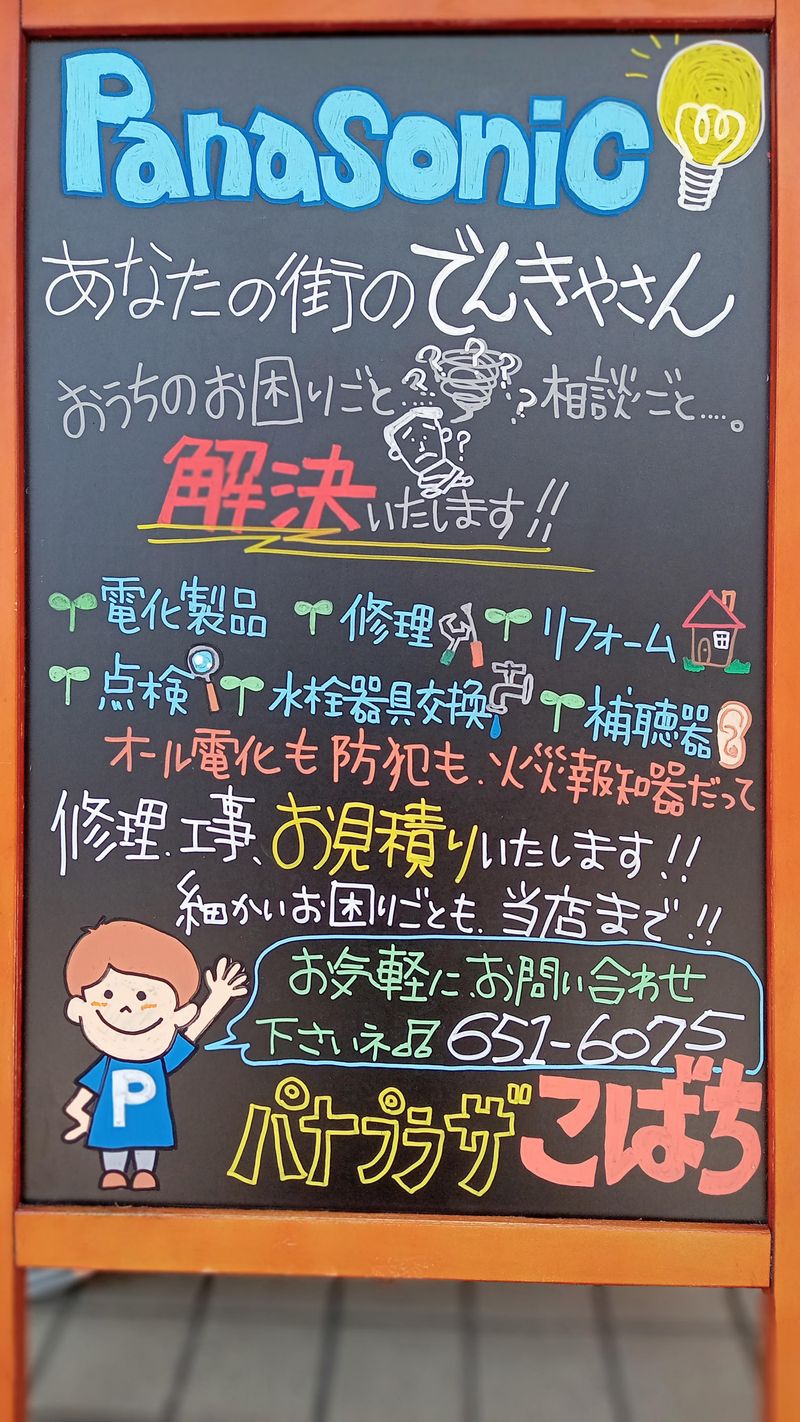 Panasonic
あなたの街のでんきやさん
おうちのお困りごと...??? ?相談ごと....。
??
解決いたします!!
電化製品 修理 リフォーム
点検 水栓器具交換 補聴器
オール電化も防犯も、火災報知器だって
修理、工事、お見積りいたします!!
細かいお困りごとも、当店まで!!
お気軽に、お問い合わせ
下さいネ♫ 651-6075
P
パナプラザこばち